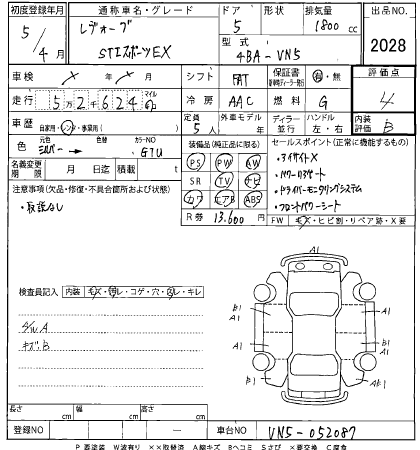 初度登録年月 通称車名・グレード ドア 形状 排気量 出品NO.
5/4月 レヴォーグ 5 1800cc 2028
STIスポーツEX 型式 4BA-VN5
車検 × 年 × 月 シフト FAT 保証書 有・無 評価点
走行 5万2624 マイル km 冷房 AAC 燃料 G 4
車歴 自家用・レンタ・事業用( ) 定員 5人 外車モデル 年 ディーラー 並行 ハンドル 左・右 内装評価 B
色 元色 シルバー 色替 カラーNO G1U 装備品(純正品に限る) セールスポイント(正常に機能するもの)
名義変更期限 月 日迄 積載 t PS PW AW ・アイサイトX
注意事項(欠品・修復・不具合箇所および状態) SR TV ナビ ・パワーリヤゲート
・取説なし カワ エアB ABS ・ドライバーモニタリングシステム
R券 13,600円 ・フロントパワーシート
FW キズ・ヒビ割・リペア跡・X要
検査員記入 内装 キズ・汚レ・コゲ・穴・スレ・キレ
A1
B1 A1 A1 B1
A1 A1
B1 A1 A1
B1 A1 AB1
S/W A
キズ.B
長さ cm 幅 cm 高さ cm
登録NO ― 車台NO VN5-052087
P 要塗装 W波有り ××取替済 A線キズ Bヘコミ Sさび ×要交換 C腐食